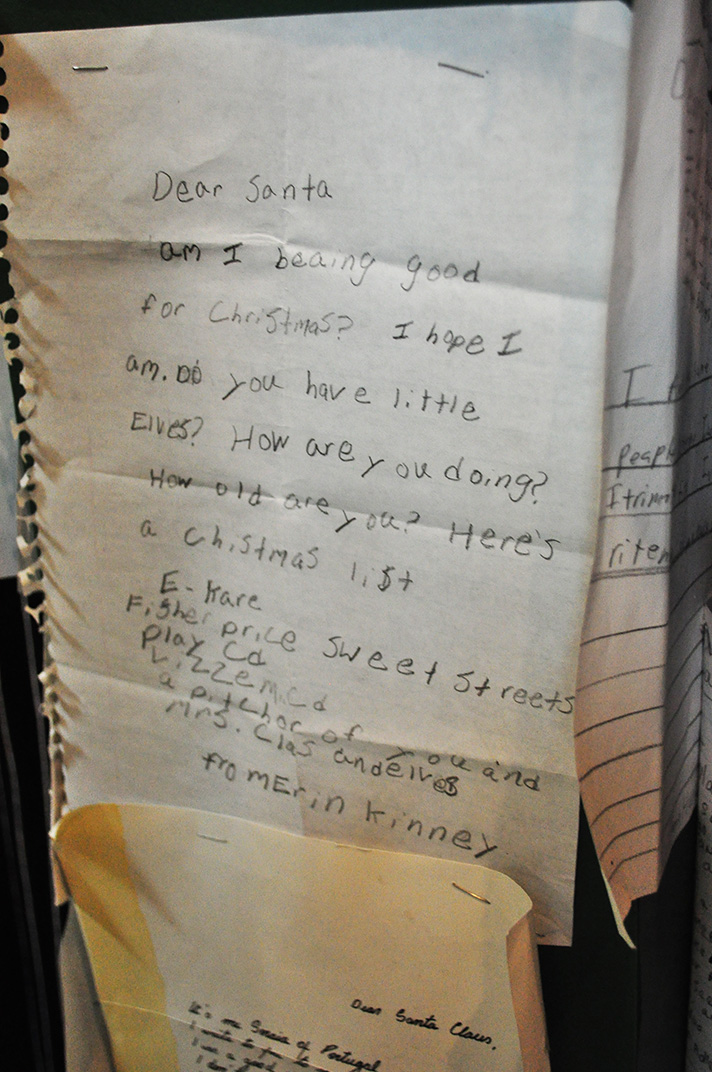 Dear Santa
am I beaing good
for Christmas? I hope I
am. Do you have little
Elves? How are you doing?
How old are you? Here's
a Chistmas list
E-Kare
Fisher price sweet streets
Play Cd
Lizzem.Cd
a pitchor of you and
Mrs. Clas and elves
from Erin Kinney
I
peapl
I trimm
riten
Dear Santa Claus,
It's me Sonia of Portugal
I wrote to you to
I am a good
I